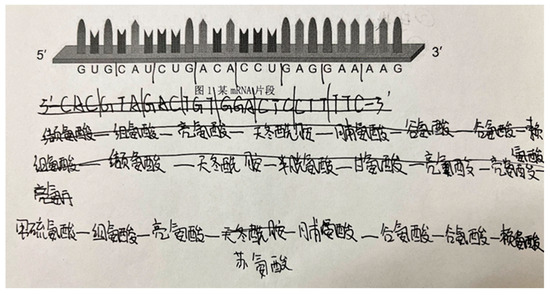 5' 3'
GUGCAUCUGACACCUGAGGAAAAG
图1 某mRNA片段
3'-CAC GTA GAC TGT GGA CTC CTT TTC-5'
缬氨酸—组氨酸—亮氨酸—天冬酰胺—脯氨酸—谷氨酸—谷氨酸—赖氨酸
组氨酸—缬氨酸—天冬酰胺—半胱氨酸—甘氨酸—亮氨酸—亮氨酸
亮氨
甲硫氨酸—组氨酸—亮氨酸—天冬酰胺—脯氨酸—谷氨酸—谷氨酸—赖氨酸
苏氨酸